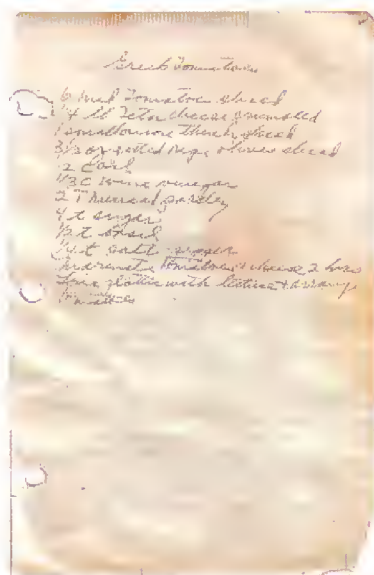 Greek Tomatoes
6 med Tomatoes sliced
1/4 lb Feta cheese crumbled
1 small onion thinly sliced
3 1/2 oz pitted ripe olives sliced
1/2 C oil
1/3 C wine vinegar
2 T minced parsley
t sugar
1/2 t basil
1/4 t salt pepper
Marinate Tomatoes + cheese 2 hrs
platter with lettuce + arrange